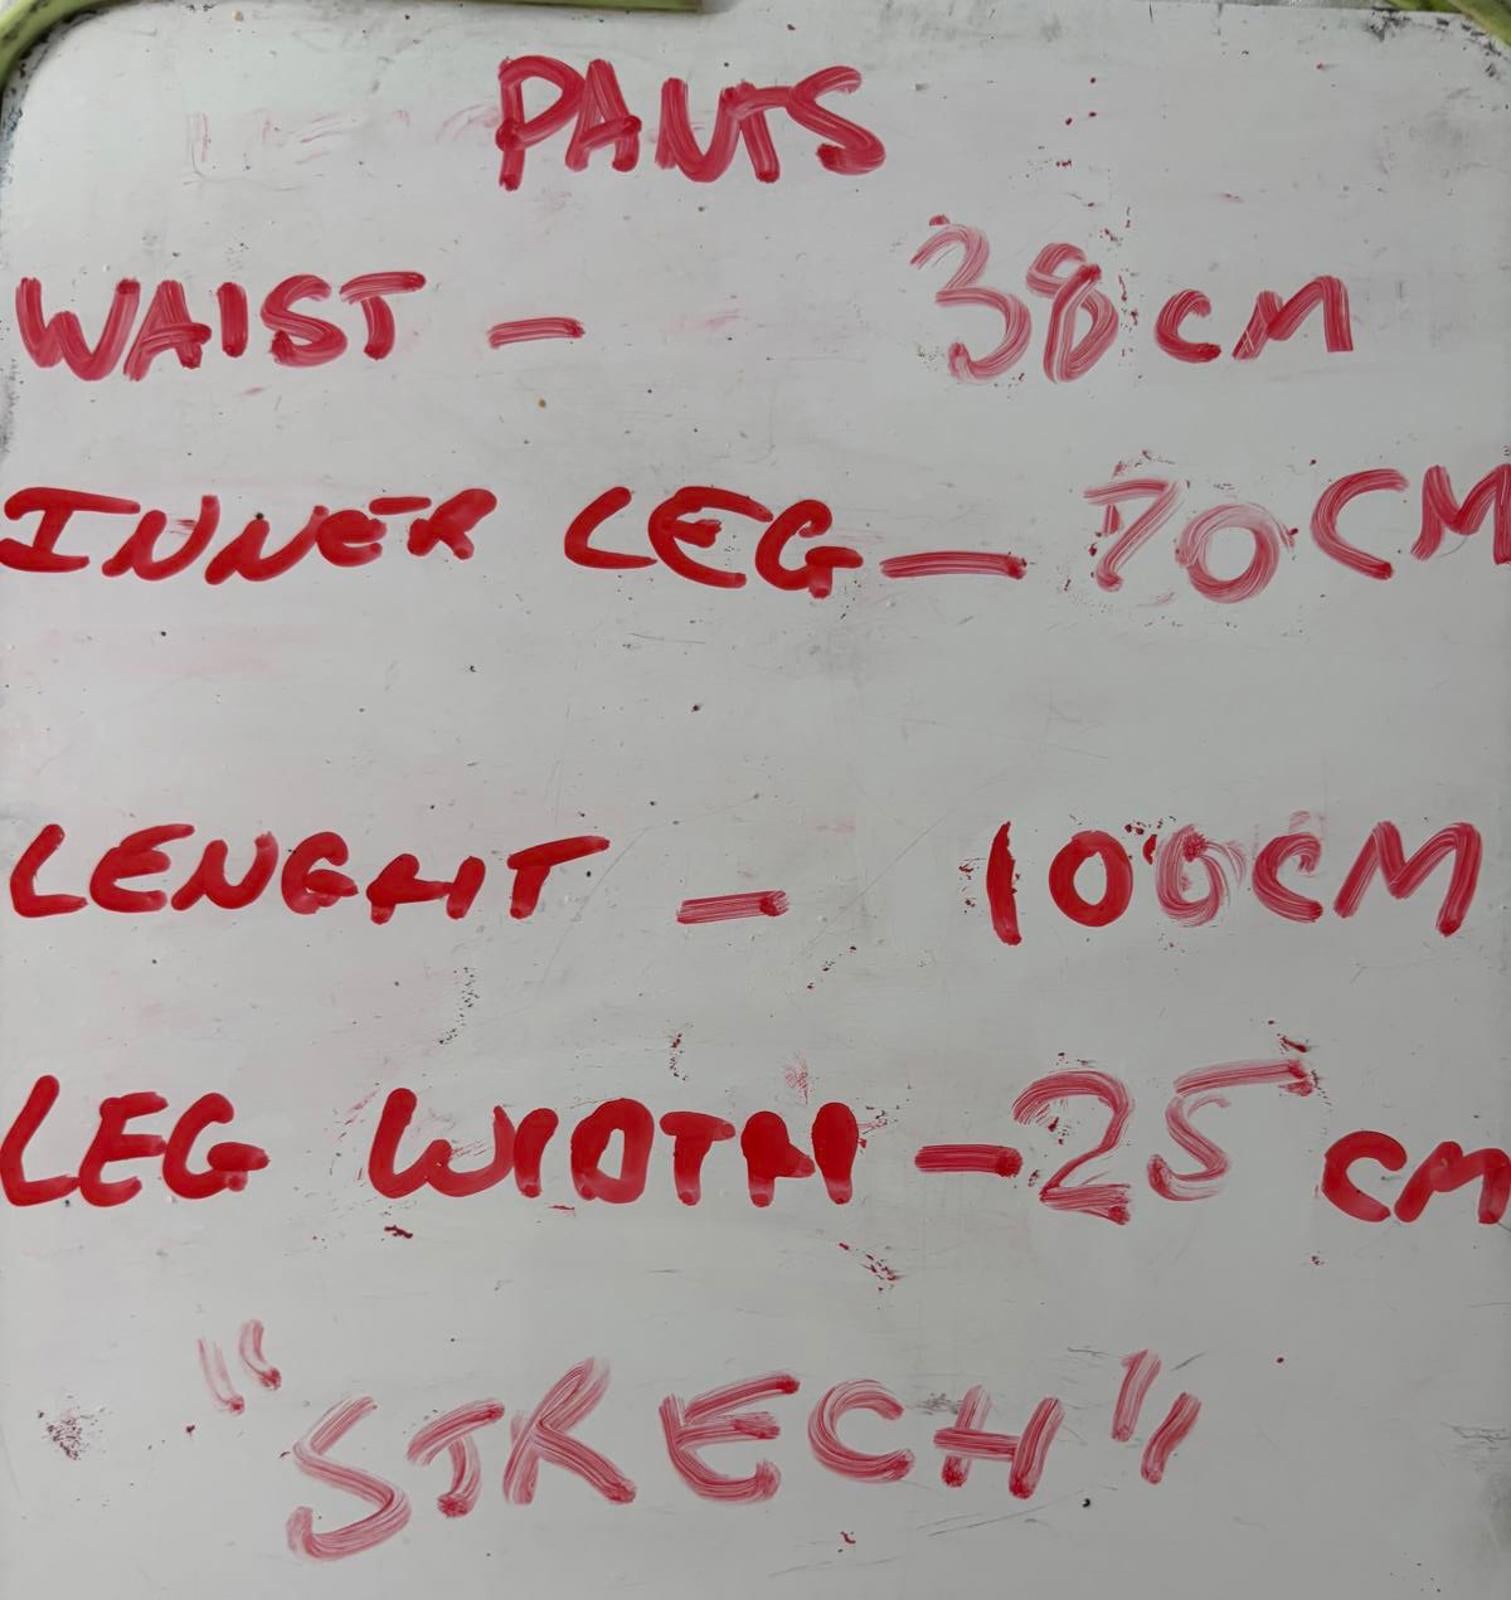 PANTS
WAIST - 38 CM
INNER LEG - 70 CM
LENGHT - 100 CM
LEG WIDTH - 25 CM
"STRECH"